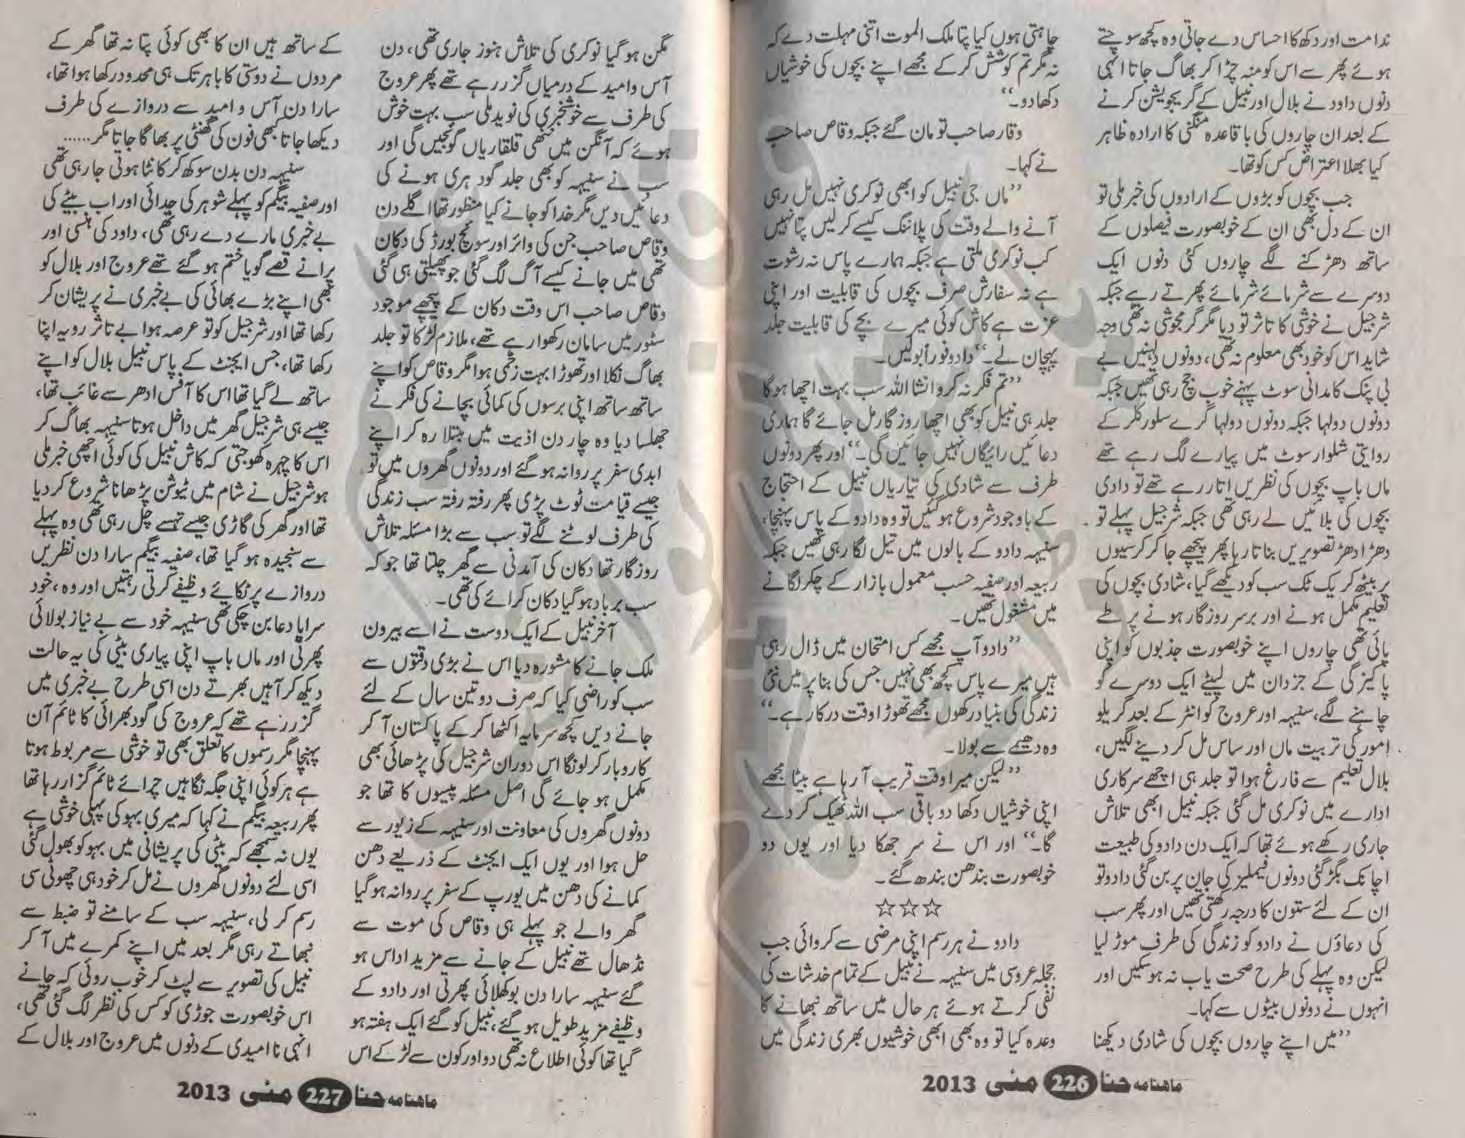 ندامت اور دکھ کا احساس دے جاتی وہ کچھ سوچتے
ہوئے پھر سے اس کو منہ چڑا کر بھاگ جاتا انہی
دنوں داود نے بلال اور نبیل کے گریجویشن کرنے
کے بعد ان چاروں کی باقاعدہ منگنی کا ارادہ ظاہر
کیا بھلا اعتراض کس کو تھا۔
جب بچوں کو بڑوں کے ارادوں کی خبر ملی تو
ان کے دل بھی ان کے خوبصورت فیصلوں کے
ساتھ دھڑکنے لگے چاروں کئی دنوں ایک
دوسرے سے شرمائے شرمائے پھرتے رہے جبکہ
شرجیل نے خوشی کا تاثر تو دیا مگر گرمجوشی نہ تھی وجہ
شاید اس کو خود بھی معلوم نہ تھی، دونوں دلہنیں بے
بی پنک کامدانی سوٹ پہنے خوب جچ رہی تھیں جبکہ
دونوں دولہا جبکہ دونوں دولہا گرے سلور کلر کے
روایتی شلوار سوٹ میں پیارے لگ رہے تھے
ماں باپ بچوں کی نظریں اتار رہے تھے تو دادی
بچوں کی بلائیں لے رہی تھی جبکہ شرجیل پہلے تو
دھڑا دھڑ تصویریں بناتا رہا پھر پیچھے جا کر کرسیوں
پر بیٹھ کر یک ٹک سب کو دیکھے گیا، شادی بچوں کی
تعلیم مکمل ہونے اور برسر روزگار ہونے پر طے
پائی تھی چاروں اپنے خوبصورت جذبوں کو اپنی
پاکیزگی کے جزدان میں لپیٹے ایک دوسرے کو
چاہنے لگے، سنیہہ اور عروج کو انٹر کے بعد گھریلو
امور کی تربیت ماں اور ساس مل کر دینے لگیں،
بلال تعلیم سے فارغ ہوا تو جلد ہی اچھے سرکاری
ادارے میں نوکری مل گئی جبکہ نبیل ابھی تلاش
جاری رکھے ہوئے تھا کہ ایک دن دادو کی طبیعت
اچانک بگڑ گئی دونوں فیملیز کی جان پر بن گئی دادو تو
ان کے لئے ستون کا درجہ رکھتی تھیں اور پھر سب
کی دعاؤں نے دادو کو زندگی کی طرف موڑ لیا
لیکن وہ پہلے کی طرح صحت یاب نہ ہو سکیں اور
انہوں نے دونوں بیٹوں سے کہا۔
"میں اپنے چاروں بچوں کی شادی دیکھنا
چاہتی ہوں کیا پتا ملک الموت اتنی مہلت دے کہ
نہ مگر تم کوشش کر کے مجھے اپنے بچوں کی خوشیاں
دکھا دو۔"
وقار صاحب تو مان گئے جبکہ وقاص صاحب
نے کہا۔
"ماں جی نبیل کو ابھی نوکری نہیں مل رہی
آنے والے وقت کی پلاننگ کیسے کر لیں پتا نہیں
کب نوکری ملتی ہے جبکہ ہمارے پاس نہ رشوت
ہے نہ سفارش صرف بچوں کی قابلیت اور اپنی
عزت ہے کاش کوئی میرے بچے کی قابلیت جلد
پہچان لے۔" دادو فوراً بولیں۔
"تم فکر نہ کرو انشا اللہ سب بہت اچھا ہوگا
جلد ہی نبیل کو بھی اچھا روزگار مل جائے گا ہماری
دعائیں رائیگاں نہیں جائیں گی۔" اور پھر دونوں
طرف سے شادی کی تیاریاں نبیل کے احتجاج
کے باوجود شروع ہو گئیں تو وہ دادو کے پاس پہنچا،
سنیہہ دادو کے بالوں میں تیل لگا رہی تھیں جبکہ
ربیعہ اور صفیہ حسب معمول بازار کے چکر لگانے
میں مشغول تھیں۔
"دادو آپ مجھے کس امتحان میں ڈال رہی
ہیں میرے پاس کچھ بھی نہیں جس کی بنا پر میں نئی
زندگی کی بنیاد رکھوں مجھے تھوڑا وقت درکار ہے۔"
وہ دھیمے سے بولا۔
"لیکن میرا وقت قریب آ رہا ہے بیٹا مجھے
اپنی خوشیاں دکھا دو باقی سب اللہ ٹھیک کر دے
گا۔" اور اس نے سر جھکا دیا اور یوں دو
خوبصورت بندھن بندھ گئے۔
☆☆☆
دادو نے ہر رسم اپنی مرضی سے کروائی جب
حجلہ عروسی میں سنیہہ نے نبیل کے تمام خدشات کی
نفی کرتے ہوئے ہر حال میں ساتھ نبھانے کا
وعدہ کیا تو وہ بھی ابھی خوشیوں بھری زندگی میں
ماہنامہ حنا 226 مئی 2013
مگن ہو گیا نوکری کی تلاش ہنوز جاری تھی، دن
آس و امید کے درمیاں گزر رہے تھے پھر عروج
کی طرف سے خوشخبری کی نوید ملی سب بہت خوش
ہوئے کہ آنگن میں ننھی قلقاریاں گونجیں گی اور
سب نے سنیہہ کو بھی جلد گود ہری ہونے کی
دعائیں دیں مگر خدا کو جانے کیا منظور تھا اگلے دن
وقاص صاحب جن کی وائر اور سوئچ بورڈ کی دکان
تھی میں جانے کیسے آگ لگ گئی جو پھیلتی ہی گئی
وقاص صاحب اس وقت دکان کے پیچھے موجود
سٹور میں سامان رکھوا رہے تھے، ملازم لڑکا تو جلد
بھاگ نکلا اور تھوڑا بہت زخمی ہوا مگر وقاص کو اپنے
ساتھ ساتھ اپنی برسوں کی کمائی بچانے کی فکر نے
جھلسا دیا وہ چار دن اذیت میں مبتلا رہ کر اپنے
ابدی سفر پر روانہ ہو گئے اور دونوں گھروں میں تو
جیسے قیامت ٹوٹ پڑی پھر رفتہ رفتہ سب زندگی
کی طرف لوٹنے لگے تو سب سے بڑا مسئلہ تلاش
روزگار تھا دکان کی آمدنی سے گھر چلتا تھا جو کہ
سب برباد ہو گیا دکان کرائے کی تھی۔
آخر نبیل کے ایک دوست نے اسے بیرون
ملک جانے کا مشورہ دیا اس نے بڑی دقتوں سے
سب کو راضی کیا کہ صرف دو تین سال کے لئے
جانے دیں کچھ سرمایہ اکٹھا کر کے پاکستان آ کر
کاروبار کر لونگا اس دوران شرجیل کی پڑھائی بھی
مکمل ہو جائے گی اصل مسئلہ پیسوں کا تھا جو
دونوں گھروں کی معاونت اور سنیہہ کے زیور سے
حل ہوا اور یوں ایک ایجنٹ کے ذریعے دھن
کمانے کی دھن میں یورپ کے سفر پر روانہ ہو گیا
گھر والے جو پہلے ہی وقاص کی موت سے
نڈھال تھے نبیل کے جانے سے مزید اداس ہو
گئے سنیہہ سارا دن بوکھلائی پھرتی اور دادو کے
وظیفے مزید طویل ہو گئے، نبیل کو گئے ایک ہفتہ ہو
گیا تھا کوئی اطلاع نہ تھی دو اور کون سے لڑکے اس
کے ساتھ ہیں ان کا بھی کوئی پتا نہ تھا گھر کے
مردوں نے دوستی کا باہر تک ہی محدود رکھا ہوا تھا،
سارا دن آس و امید سے دروازے کی طرف
دیکھا جاتا بھی فون کی گھنٹی پر بھاگا جاتا مگر......
سنیہہ دن بدن سوکھ کر کانٹا ہوتی جا رہی تھی
اور صفیہ بیگم کو پہلے شوہر کی جدائی اور اب بیٹے کی
بے خبری مارے دے رہی تھی، داود کی ہنسی اور
پرانے قصے گویا ختم ہو گئے تھے عروج اور بلال کو
بھی اپنے بڑے بھائی کی بے خبری نے پریشان کر
رکھا تھا اور شرجیل کو تو عرصہ ہوا بے تاثر رویہ اپنا
رکھا تھا، جس ایجنٹ کے پاس نبیل بلال کو اپنے
ساتھ لے گیا تھا اس کا آفس ادھر سے غائب تھا،
جیسے ہی شرجیل گھر میں داخل ہوتا سنیہہ بھاگ کر
اس کا چہرہ کھوجتی کہ کاش نبیل کی کوئی اچھی خبر ملی
ہو شرجیل نے شام میں ٹیوشن پڑھانا شروع کر دیا
تھا اور گھر کی گاڑی جیسے تیسے چل رہی تھی وہ پہلے
سے سنجیدہ ہو گیا تھا، صفیہ بیگم سارا دن نظریں
دروازے پر ٹکائے وظیفے کرتی رہتیں اور وہ، خود
سراپا دعا بن چکی تھی سنیہہ خود سے بے نیاز بولائی
پھرتی اور ماں باپ اپنی پیاری بیٹی کی یہ حالت
دیکھ کر آہیں بھرتے دن اسی طرح بے خبری میں
گزر رہے تھے کہ عروج کی گود بھرائی کا ٹائم آن
پہنچا مگر رسموں کا تعلق بھی تو خوشی سے مربوط ہوتا
ہے ہر کوئی اپنی جگہ نگاہیں چرائے ٹائم گزار رہا تھا
پھر ربیعہ بیگم نے کہا کہ میری بہو کی پہلی خوشی ہے
یوں نہ سمجھے کہ بیٹی کی پریشانی میں بہو کو بھول گئی
اسی لئے دونوں گھروں نے مل کر خود ہی چھوٹی سی
رسم کر لی، سنیہہ سب کے سامنے تو ضبط سے
نبھاتے رہی مگر بعد میں اپنے کمرے میں آ کر
نبیل کی تصویر سے لپٹ کر خوب روئی کہ جانے
اس خوبصورت جوڑی کو کس کی نظر لگ گئی تھی،
انہی نا امیدی کے دنوں میں عروج اور بلال کے
ماہنامہ حنا 227 مئی 2013